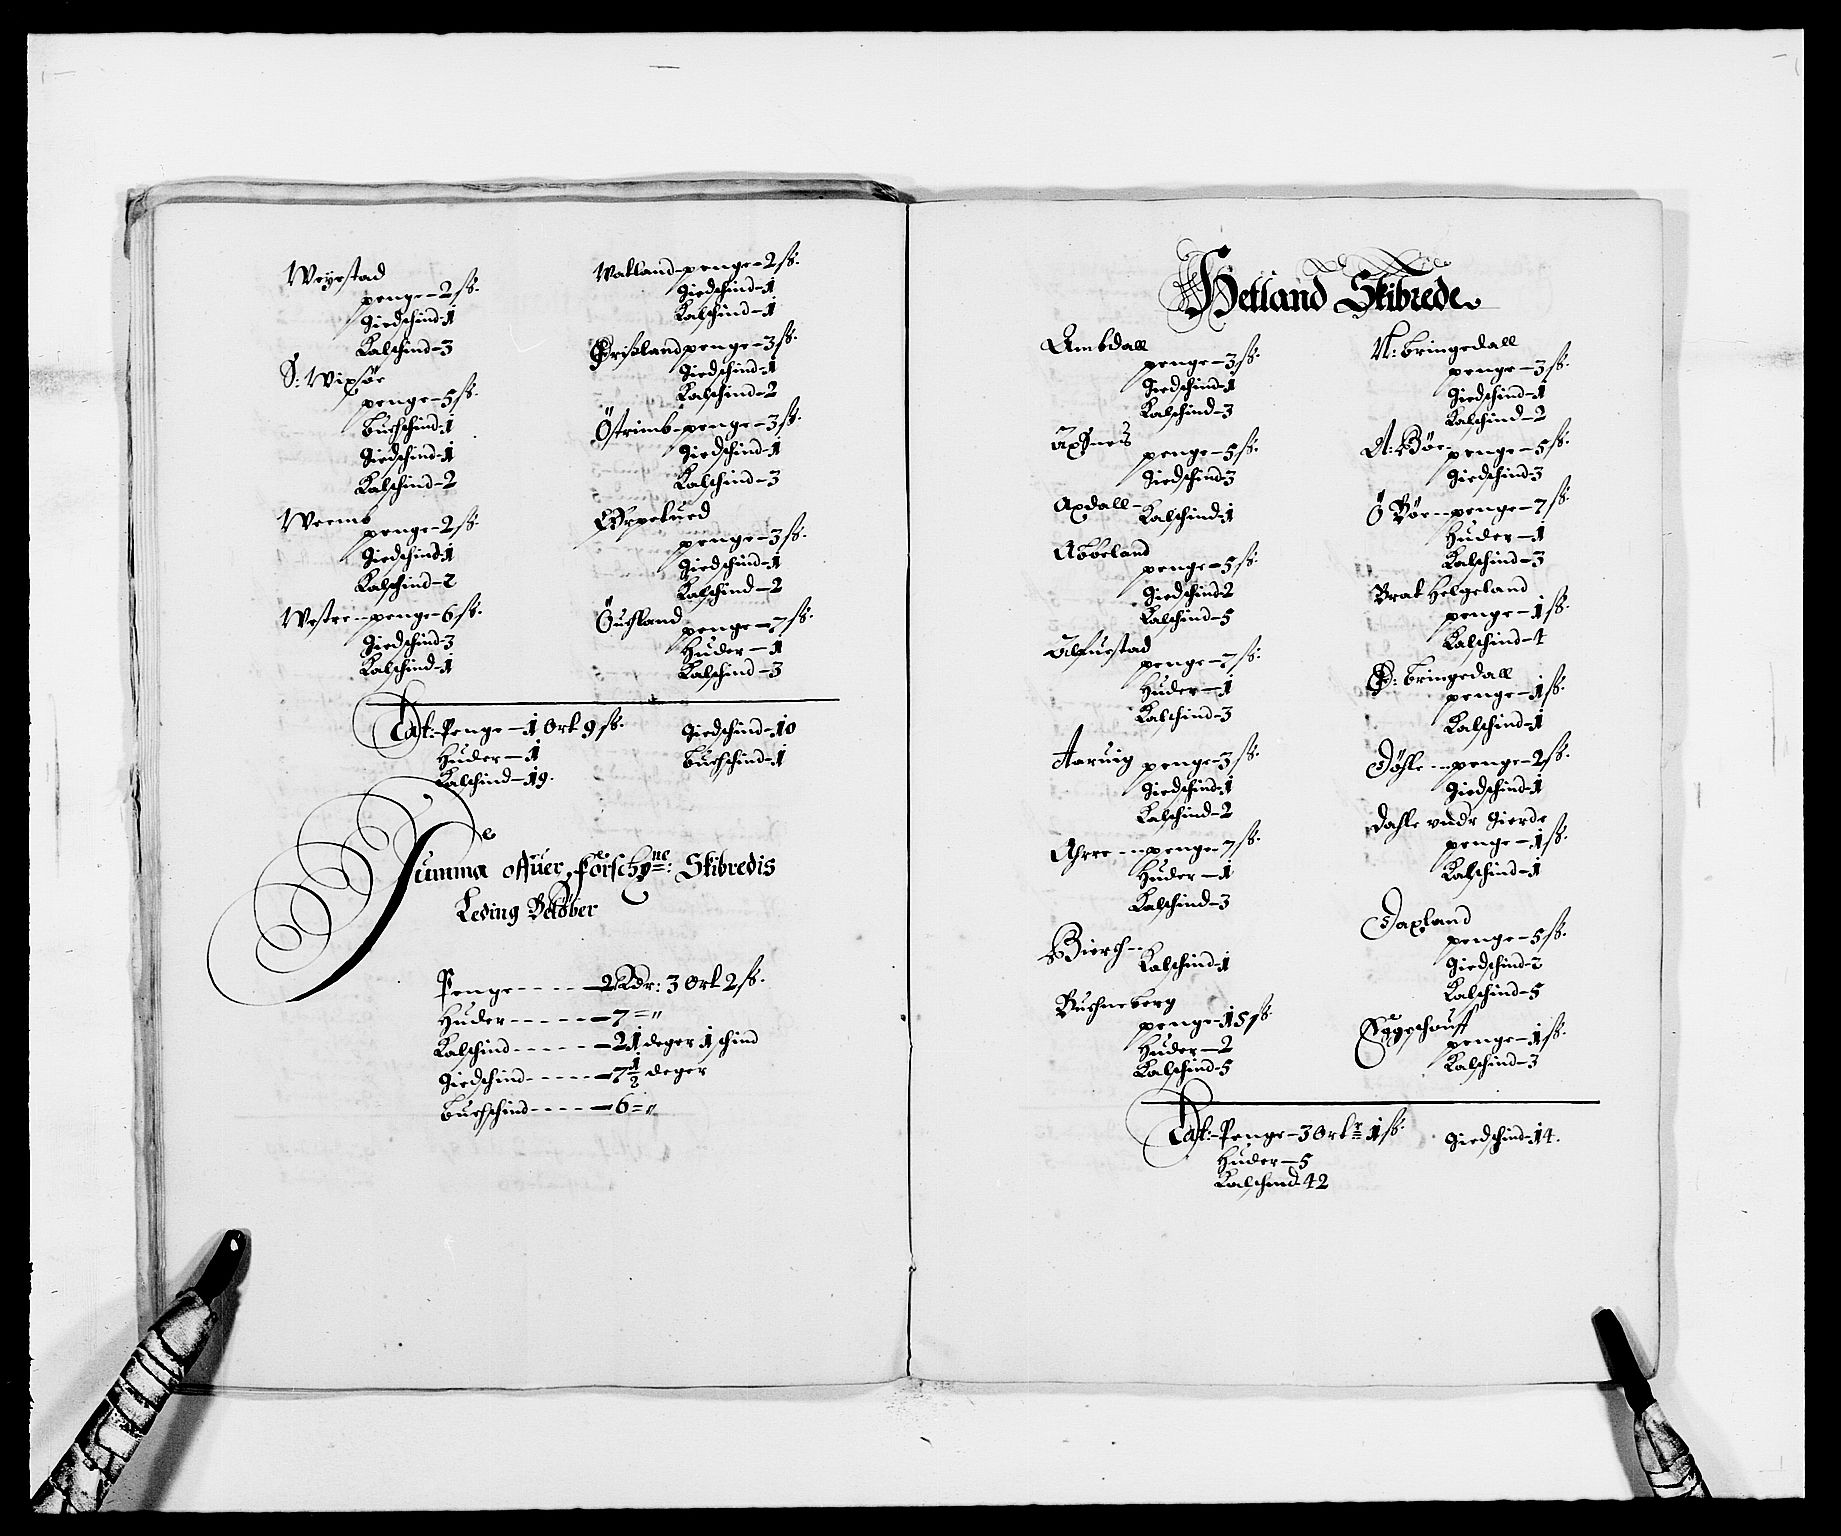 Weyestad
penge – 2 ſs.
Giedschind – 1
Kalschind – 3
S: Wixsøe
penge – 5 ſs.
buchschind – 1
Giedschind – 1
Kalschind – 2
Weemb
penge – 2 ſs.
Giedschind – 1
Kalschind – 2
Westre – – penge – 6 ſs.
Giedschind – 3
Kalschind – 1
Watland – penge – 2 ſs.
Giedschind – 1
Kalschind – 1
penge – 3 ſs.
Giedschind – 1
Kalschind – 2
Östrimb – penge – 3 ſs.
Giedschind – 1
Kalschind – 3
penge – 3 ſs.
Giedschind – 1
Kalschind – 2
penge – 7 ſs.
Huder – 1
Kalschind – 3
Lat: Penge – 1 Ort 9 ſs.
Huder – 1
Kalschind – 19.
Giedschind – 10
buchschind – 1
Summa offuer Skibredis
Leding
Penge – – – – 2 Rdr: 3 Ort 2 ſs.
Huder – – – – 7 = „
Kalschind – – – – 21 deger 1 schind
Giedschind – – – – 7 1/2 deger
buchschind – – – – 6 = „
Hetland Skibrede
Ambdall
penge – 3 ſs.
Giedschind – 1
Kalschind – 3
Äxsnes
penge – 5 ſs.
Giedschind – 3
Axdall – Kalschind – 1
Abbeland
penge – 5 ſs.
Giedschind – 2
Kalschind – 5
Alfuestad
penge – 7 ſs.
Huder – 1
Kalschind – 3
Aaruig penge – 3 ſs.
Giedschind – 1
Kalschind – 2
Ahree – – penge – 7 ſs.
Huder – 1
Kalschind – 3
Bierch – – Kalschind – 1
Buchneberg
penge – 15 ſs.
Huder – 2
Kalschind – 5
N: bringedall
penge – 3 ſs.
Giedschind – 1
Kalschind – 2
A: Bøe – penge – 5 ſs.
Giedschind – 3
Ö Bøe – – penge – 7 ſs.
Huder – 1
Kalschind – 3
Brat Helgeland
penge – 1 ſs.
Kalschind – 4
Ø: bringedall
penge – 1 ſs.
Kalschind – 1
Døhle – – penge – 2 ſs.
Giedschind – 1
Dahle vndr Gierde
penge – 1 ſs.
Kalschind – 1
Daxland
penge – 5 ſs.
Giedschind – 2
Kalschind – 5
penge – 1 ſs.
Kalschind – 3
Lat: Penge – 3 Ort 1 ſs.
Huder – 5
Kalschind – 42
Giedschind – 14.